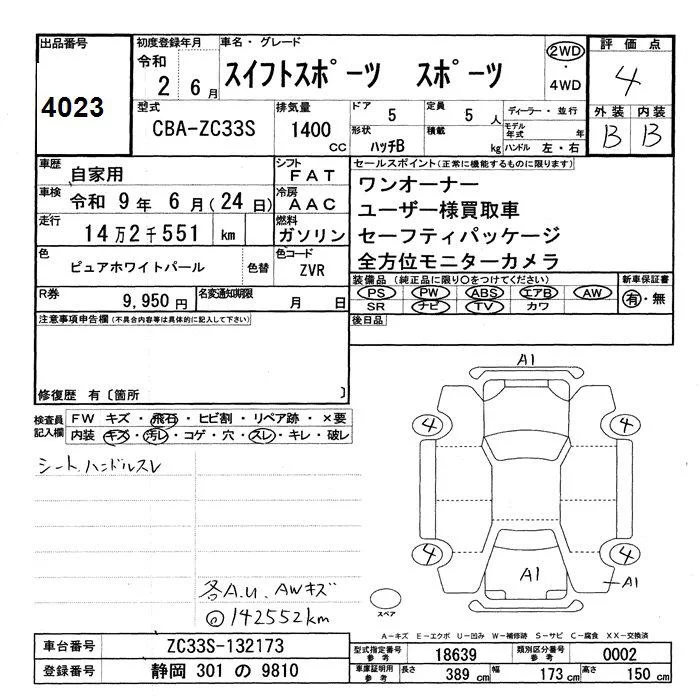 出品番号
4023
初度登録年月
令和
2 6月
車名・グレード
スイフトスポーツ スポーツ
2WD
・
4WD
評価点
4
外装 内装
B B
型式
CBA-ZC33S
排気量
1400
CC
ドア
5
定員
5
人
形状
ハッチB
積載
kg
ディーラー・並行
モデル年式
年
ハンドル 左・右
車歴
自家用
シフト
FAT
車検
令和 9年 6月(24日)
冷房
AAC
走行
14万2千551 km
燃料
ガソリン
色
ピュアホワイトパール
色替
色コード
ZVR
R券
9,950円
名変通知期限
月 日
セールスポイント(正常に機能するものに限ります)
ワンオーナー
ユーザー様買取車
セーフティパッケージ
全方位モニターカメラ
装備品(純正品に限り○をつけてください)
PS PW ABS エアB AW
SR ナビ TV カワ
新車保証書
有・無
後日品
注意事項申告欄(不具合内容等は具体的に記入して下さい)
修復歴 有〔箇所 〕
検査員記入欄
FW キズ・飛石・ヒビ割・リペア跡・×要
内装 キズ・汚レ・コゲ・穴・スレ・キレ・破レ
シート、ハンドルスレ
各A.U、AWキズ
◎142552km
A1
4 4
4 4
A1
A1
スペア
A-キズ E-エクボ U-凹み W-補修跡 S-サビ C-腐食 XX-交換済
車台番号
ZC33S-132173
登録番号
静岡 301 の 9810
型式指定番号
参考
18639
類別区分番号
参考
0002
車庫証明用
参考
長さ
389 cm
幅
173 cm
高さ
150 cm